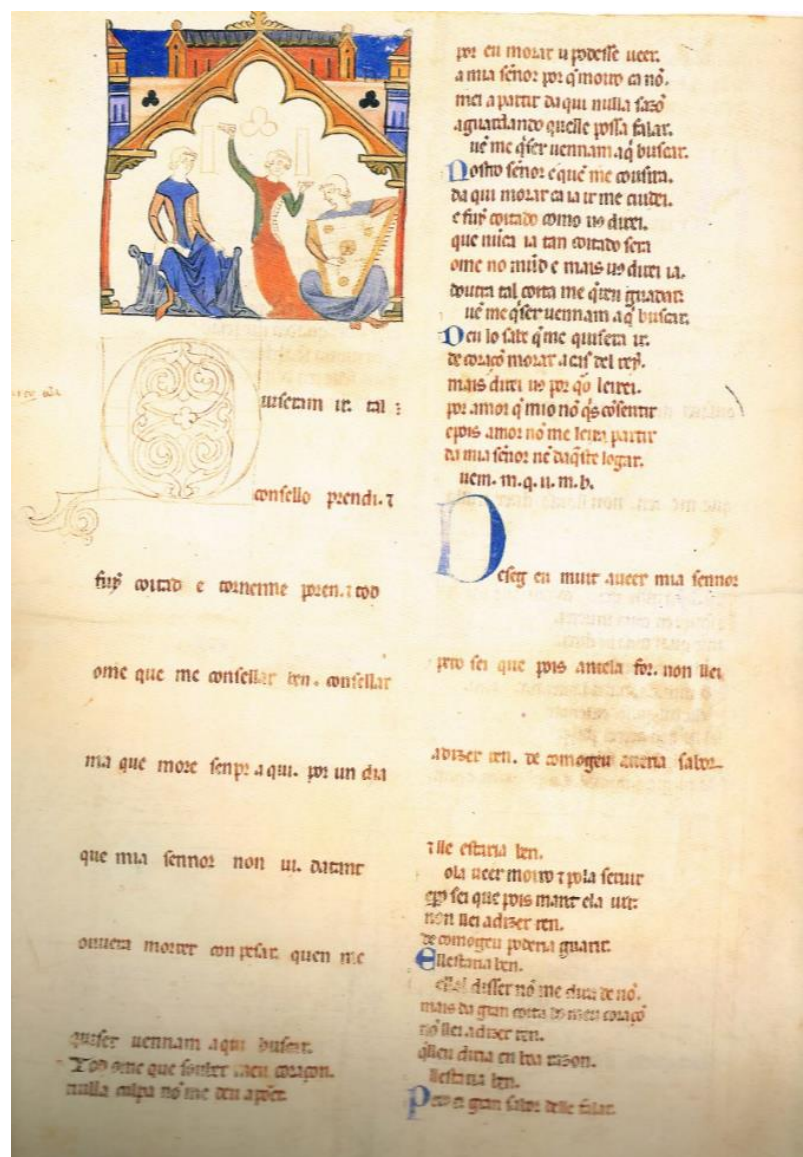 uiseram ir. tal
consello prendi. ⁊
fuy̆ coitad e torneime poren. ⁊ tod
ome que me consellar ben. consellar
ma que more senpr aqui. por un dia
que mia sennor non ui. damant
ouuera morrer con pesar. quen me
quiser uennam aqui buscar.
Tod ome que souber meu coraçon.
nulla culpa nō me deu apōer.
por eu morar u podesse ueer.
a mia señor por q̄ moiro ca nō.
mei a partir daqui nulla sazō
aguardando quelle possa falar.
uē me q̄ser uennam aq̄ buscar.
Nostro señor e que me
da qui morar ca ia ir me cuidei.
e fuy coitado como uo direi.
que nūca ia tan coitado sera
ome no mūd e mais uo direi ia.
doutra tal coita me q̄ren guardar.
uē me q̄ser uennam aq̄ buscar.
Deu lo sabe q̄ me quisera ir.
de coraçō morar a cas del rey.
mais direi uo por qo leixei.
por amor q̄ mio nō q̄s cōsentir
epois amor nō me leixa partir
da mia señor nē daq̄ste logar.
uem. m. q. u. m. b.
Deseg eu muit aueer mia sennor
pero sei que pois antela for. non llei
adizer ren. de comogeu aueria sabor
⁊ lle estaria ben.
ola ueer moiro ⁊ pola seruir
sei que pois mant ela uir:
non llei adizer ren.
de comogeu poderia guarir.
Ellestaria ben.
disser nō me dira de nō.
mais da gran coita do meu coraçō
nō llei adizer ren.
q̄lleu diria en bōa razon.
llestaria ben.
Pero ei gran sabor delle falar.